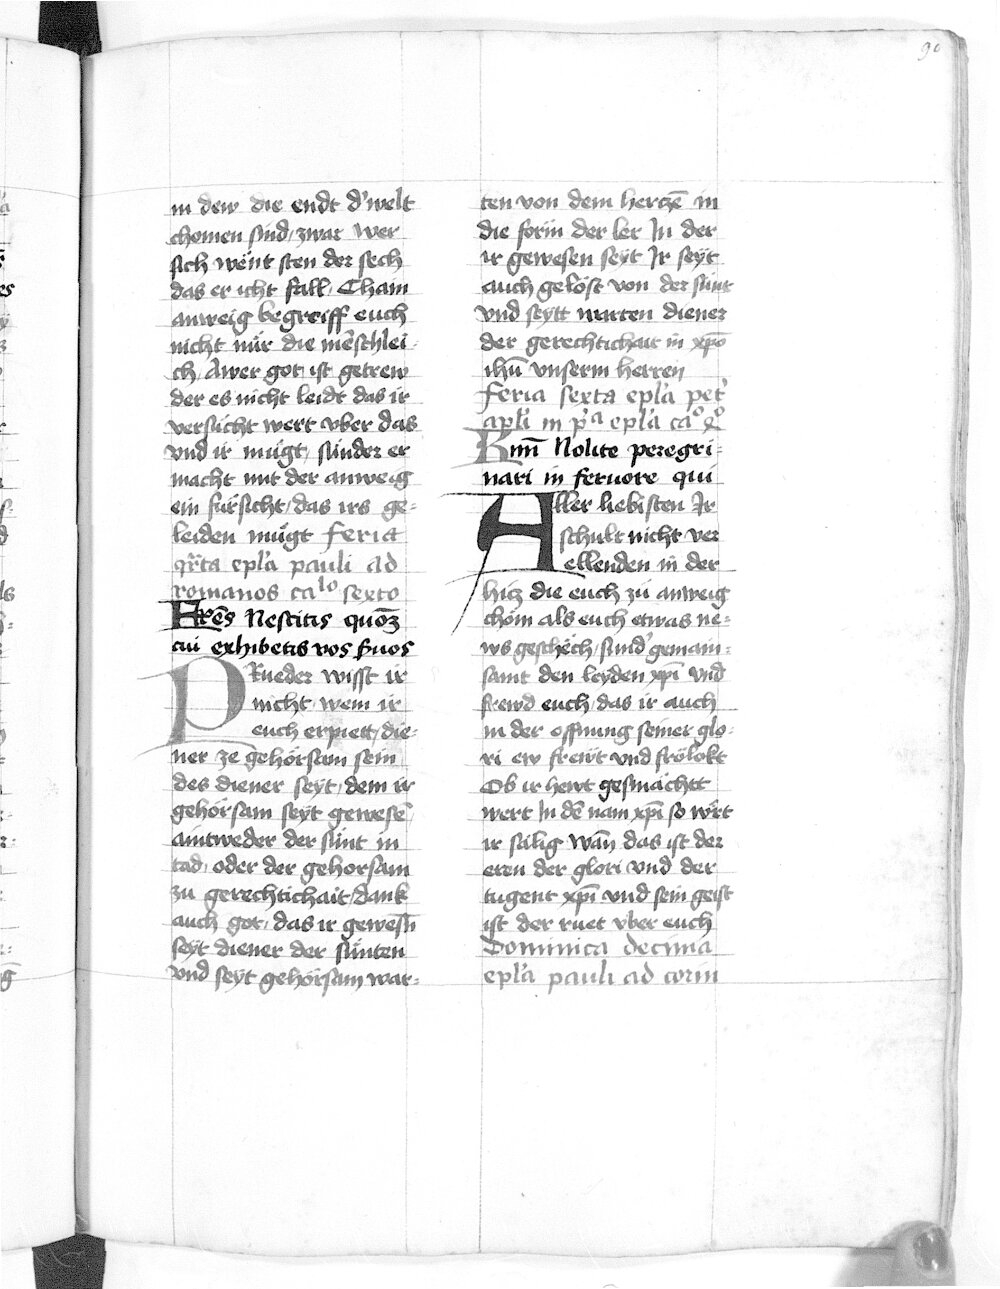 90
in dew die endt d'welt
chomen sind / zwar wer
sich wënt sten der sech
das er icht fall / Chain
anweig begreiff euch
nicht nür die mēschlei-
ch / Awer got ist getrew
der es nicht leidt das ir
versücht wert vber das
vnd ir mügt / sünder er
macht mit der anweig
ein fürsicht / das irs ge-
leiden mügt feria
qr̄ta epl'a pauli ad
romanos ca lo sexto
Frēs Nescitis quoꝫ
cui exhibetis vos s'uos
PRueder wisst ir
nicht / wem ir
euch erpiett / die-
ner ze gehörsam sein
des diener seyt / dem ir
gehörsam seyt gewesē
aintweder der sünt in
tod / oder der gehorsam
zu gerechtichait / dank
auch got / das ir gewesn̄
seyt diener der sünten
vnd seyt gehörsam war-
ten von dem herczē in
die form der ler In der
ir gewesen seyt Ir seyt
auch gelöst von der sünt
vnd seytt warten diener
der gerechtichait in xp̄o
ih̄u vnserm herren
feria sexta epl'a pet'
apl'i in p'a epl'a cao qo
Kmī Nolite peregri-
nari in feruore qui
Aller liebisten Ir
schult nicht ver
ellenden in der
hicz die euch zü anweig
chöm als euch etwas ne-
ws geschëch / sund' gemain-
samt den leyden xp̄i vnd
frewd euch / das ir auch
in der offnung seiner glo-
ri ew frewt vnd frölokt
Ob ir hewt gesmächtt
wert In dē nam xp̄i so wërt
ir sälig wān das ist der
eren der glori vnd der
tugent xp̄i vnd sein geist
ist der ruet vber euch
Dominica decima
epl'a pauli ad corin